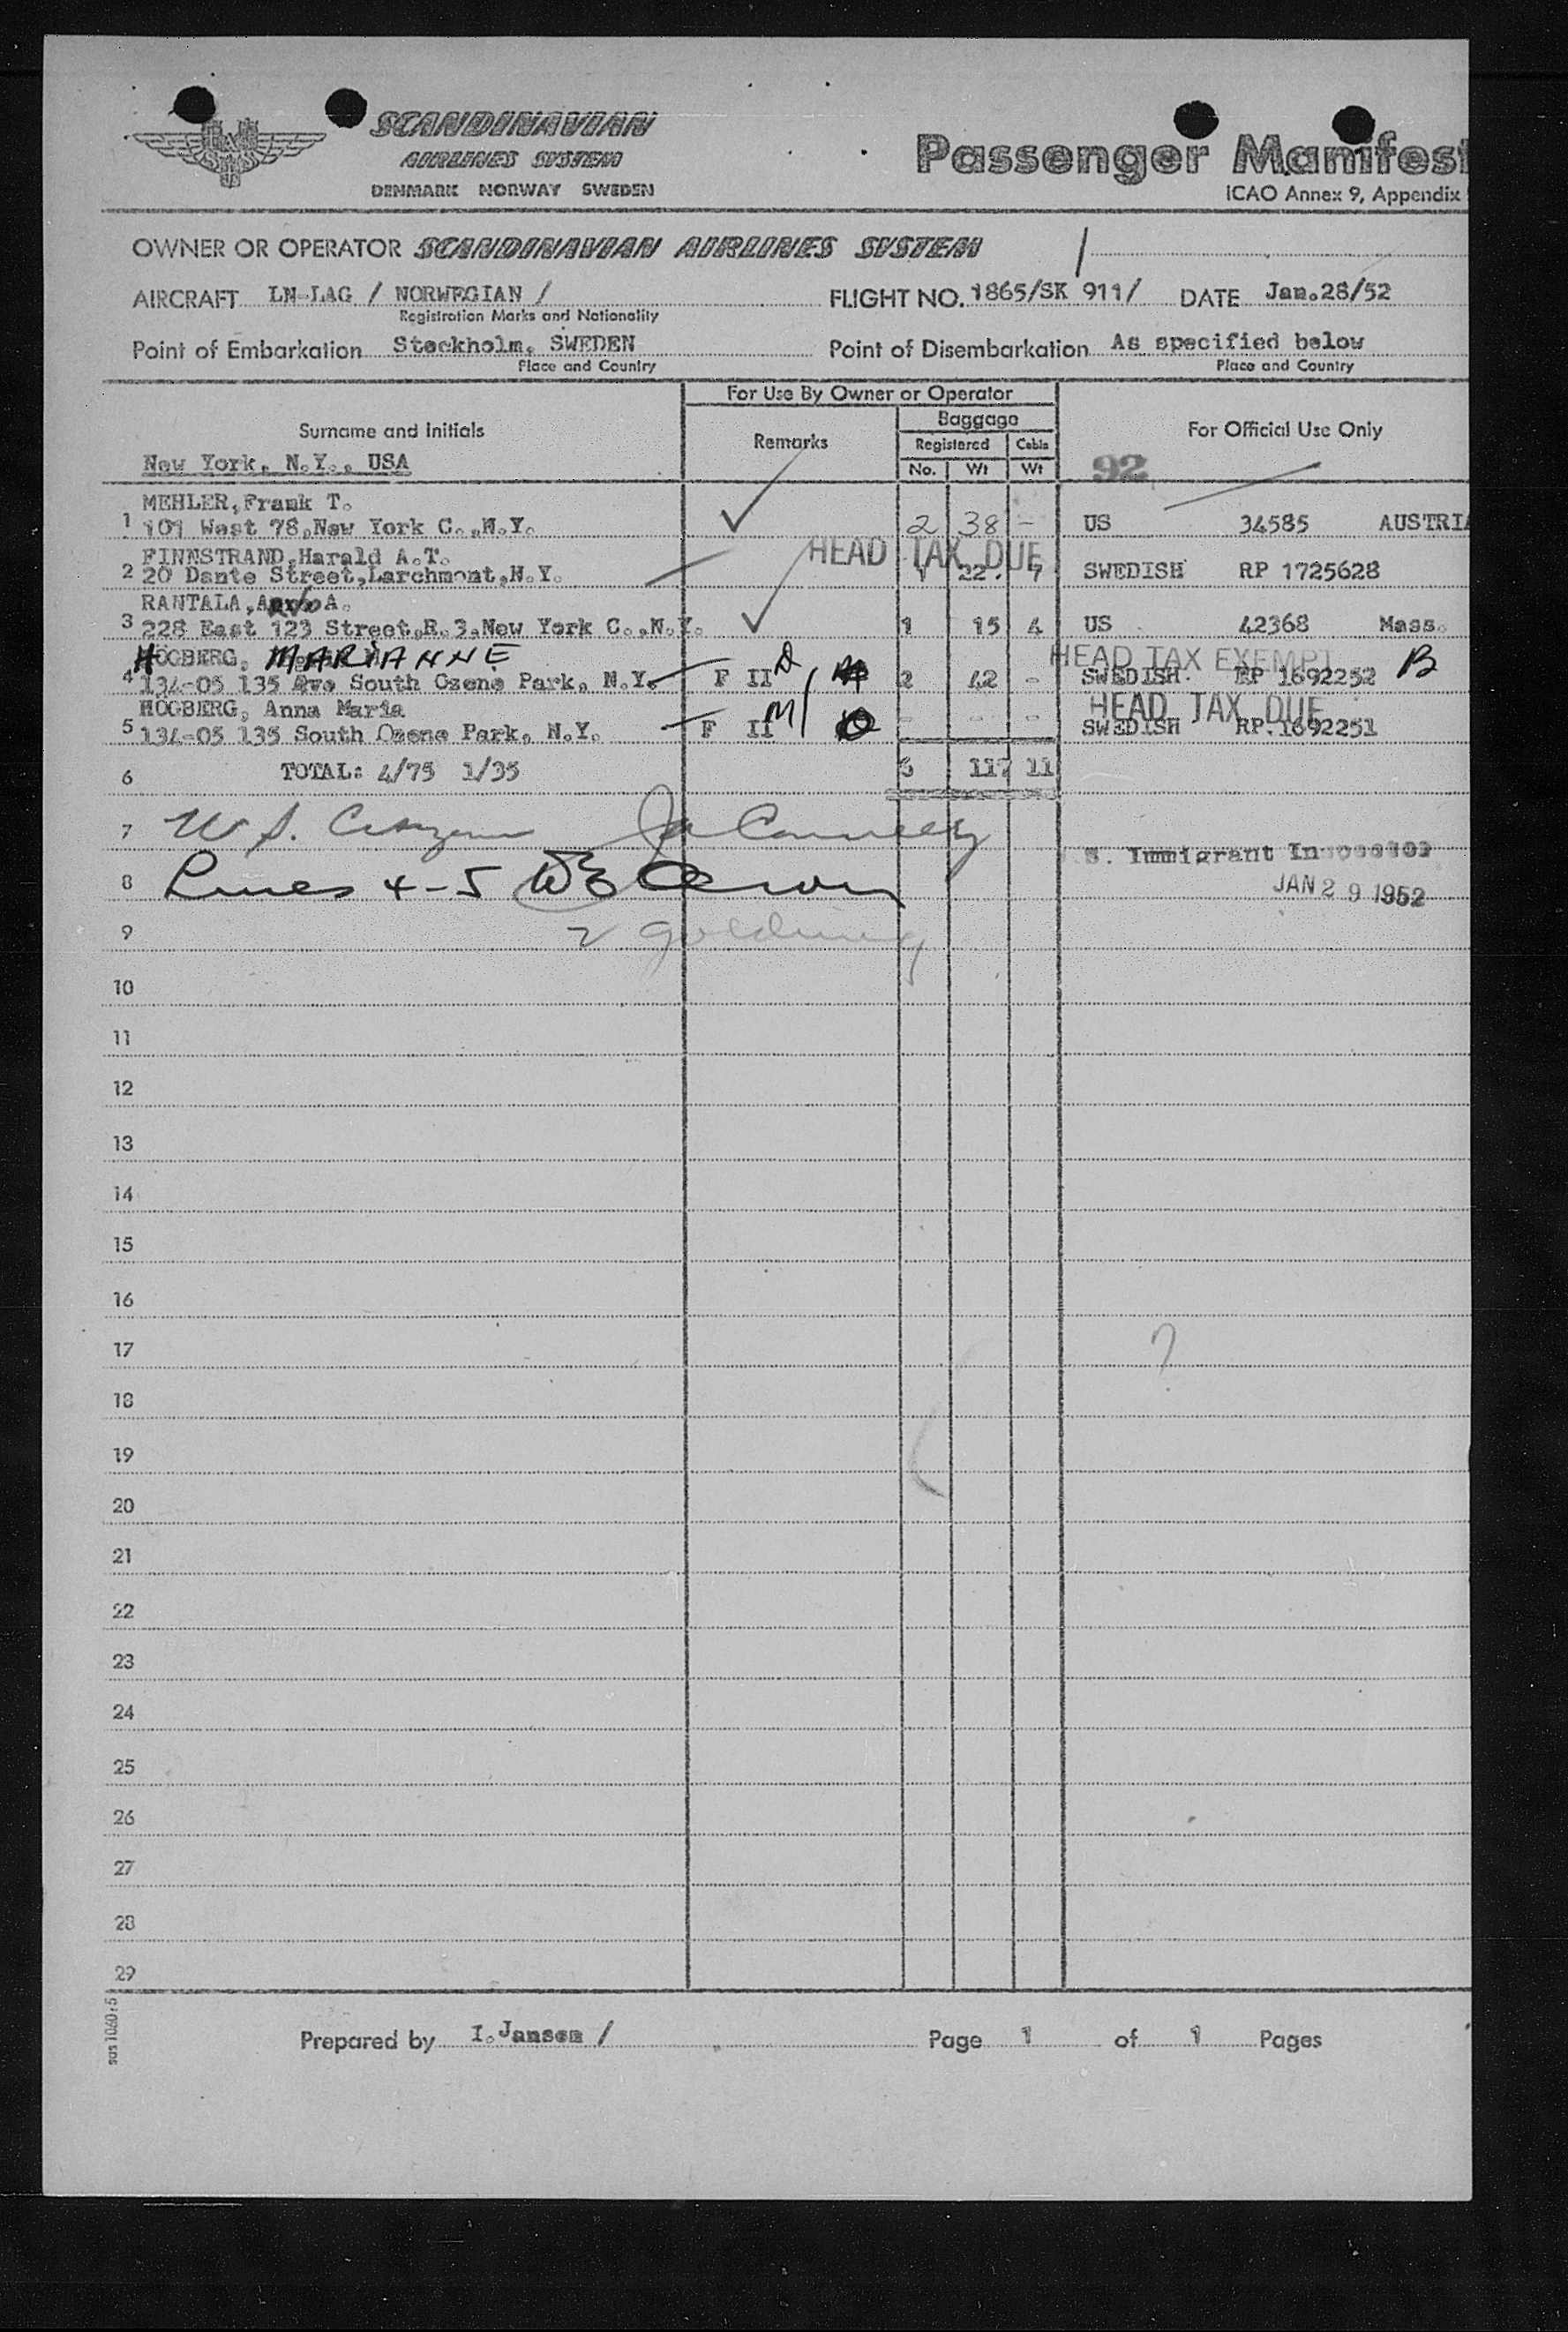 SCANDINAVIAN
AIRLINES SYSTEM
DENMARK NORWAY SWEDEN
Passenger Manifest
ICAO Annex 9, Appendix
OWNER OR OPERATOR SCANDINAVIAN AIRLINES SYSTEM
AIRCRAFT LN-LAG / NORWEGIAN / FLIGHT NO. 1865/SK 911/ DATE Jan.28/52
Registration Marks and Nationality
Point of Embarkation Stockholm, SWEDEN Point of Disembarkation As specified below
Place and Country Place and Country
For Use By Owner or Operator
Surname and Initials Remarks Baggage For Official Use Only
Registered Cabin
No. Wt Wt
New York, N.Y., USA 92
MEHLER, Frank T.
1 101 West 78, New York C., N.Y. 2 38 - US 34585 AUSTRIA
HEAD TAX DUE
FINNSTRAND, Harald A.T.
2 20 Dante Street, Larchmont, N.Y. 1 22 7 SWEDISH RP 1725628
RANTALA, A.
3 228 East 123 Street, R.3, New York C., N.Y. 1 15 4 US 42368 Mass.
HOGBERG, MARIANNE HEAD TAX EXEMPT B
4 134-05 135 Ave South Ozene Park, N.Y. F II D 2 42 - SWEDISH RP 1692252
HOGBERG, Anna Maria HEAD TAX DUE
5 134-05 135 South Ozene Park, N.Y. F II M - - - SWEDISH RP.1692251
6 TOTAL: 4/75 1/35 6 117 11
7 U.S. Citizens
S. Immigrant Inspector
8 Lines 4-5
JAN 29 1952
9
10
11
12
13
14
15
16
17
18
19
20
21
22
23
24
25
26
27
28
29
Prepared by I. Jansen / Page 1 of 1 Pages